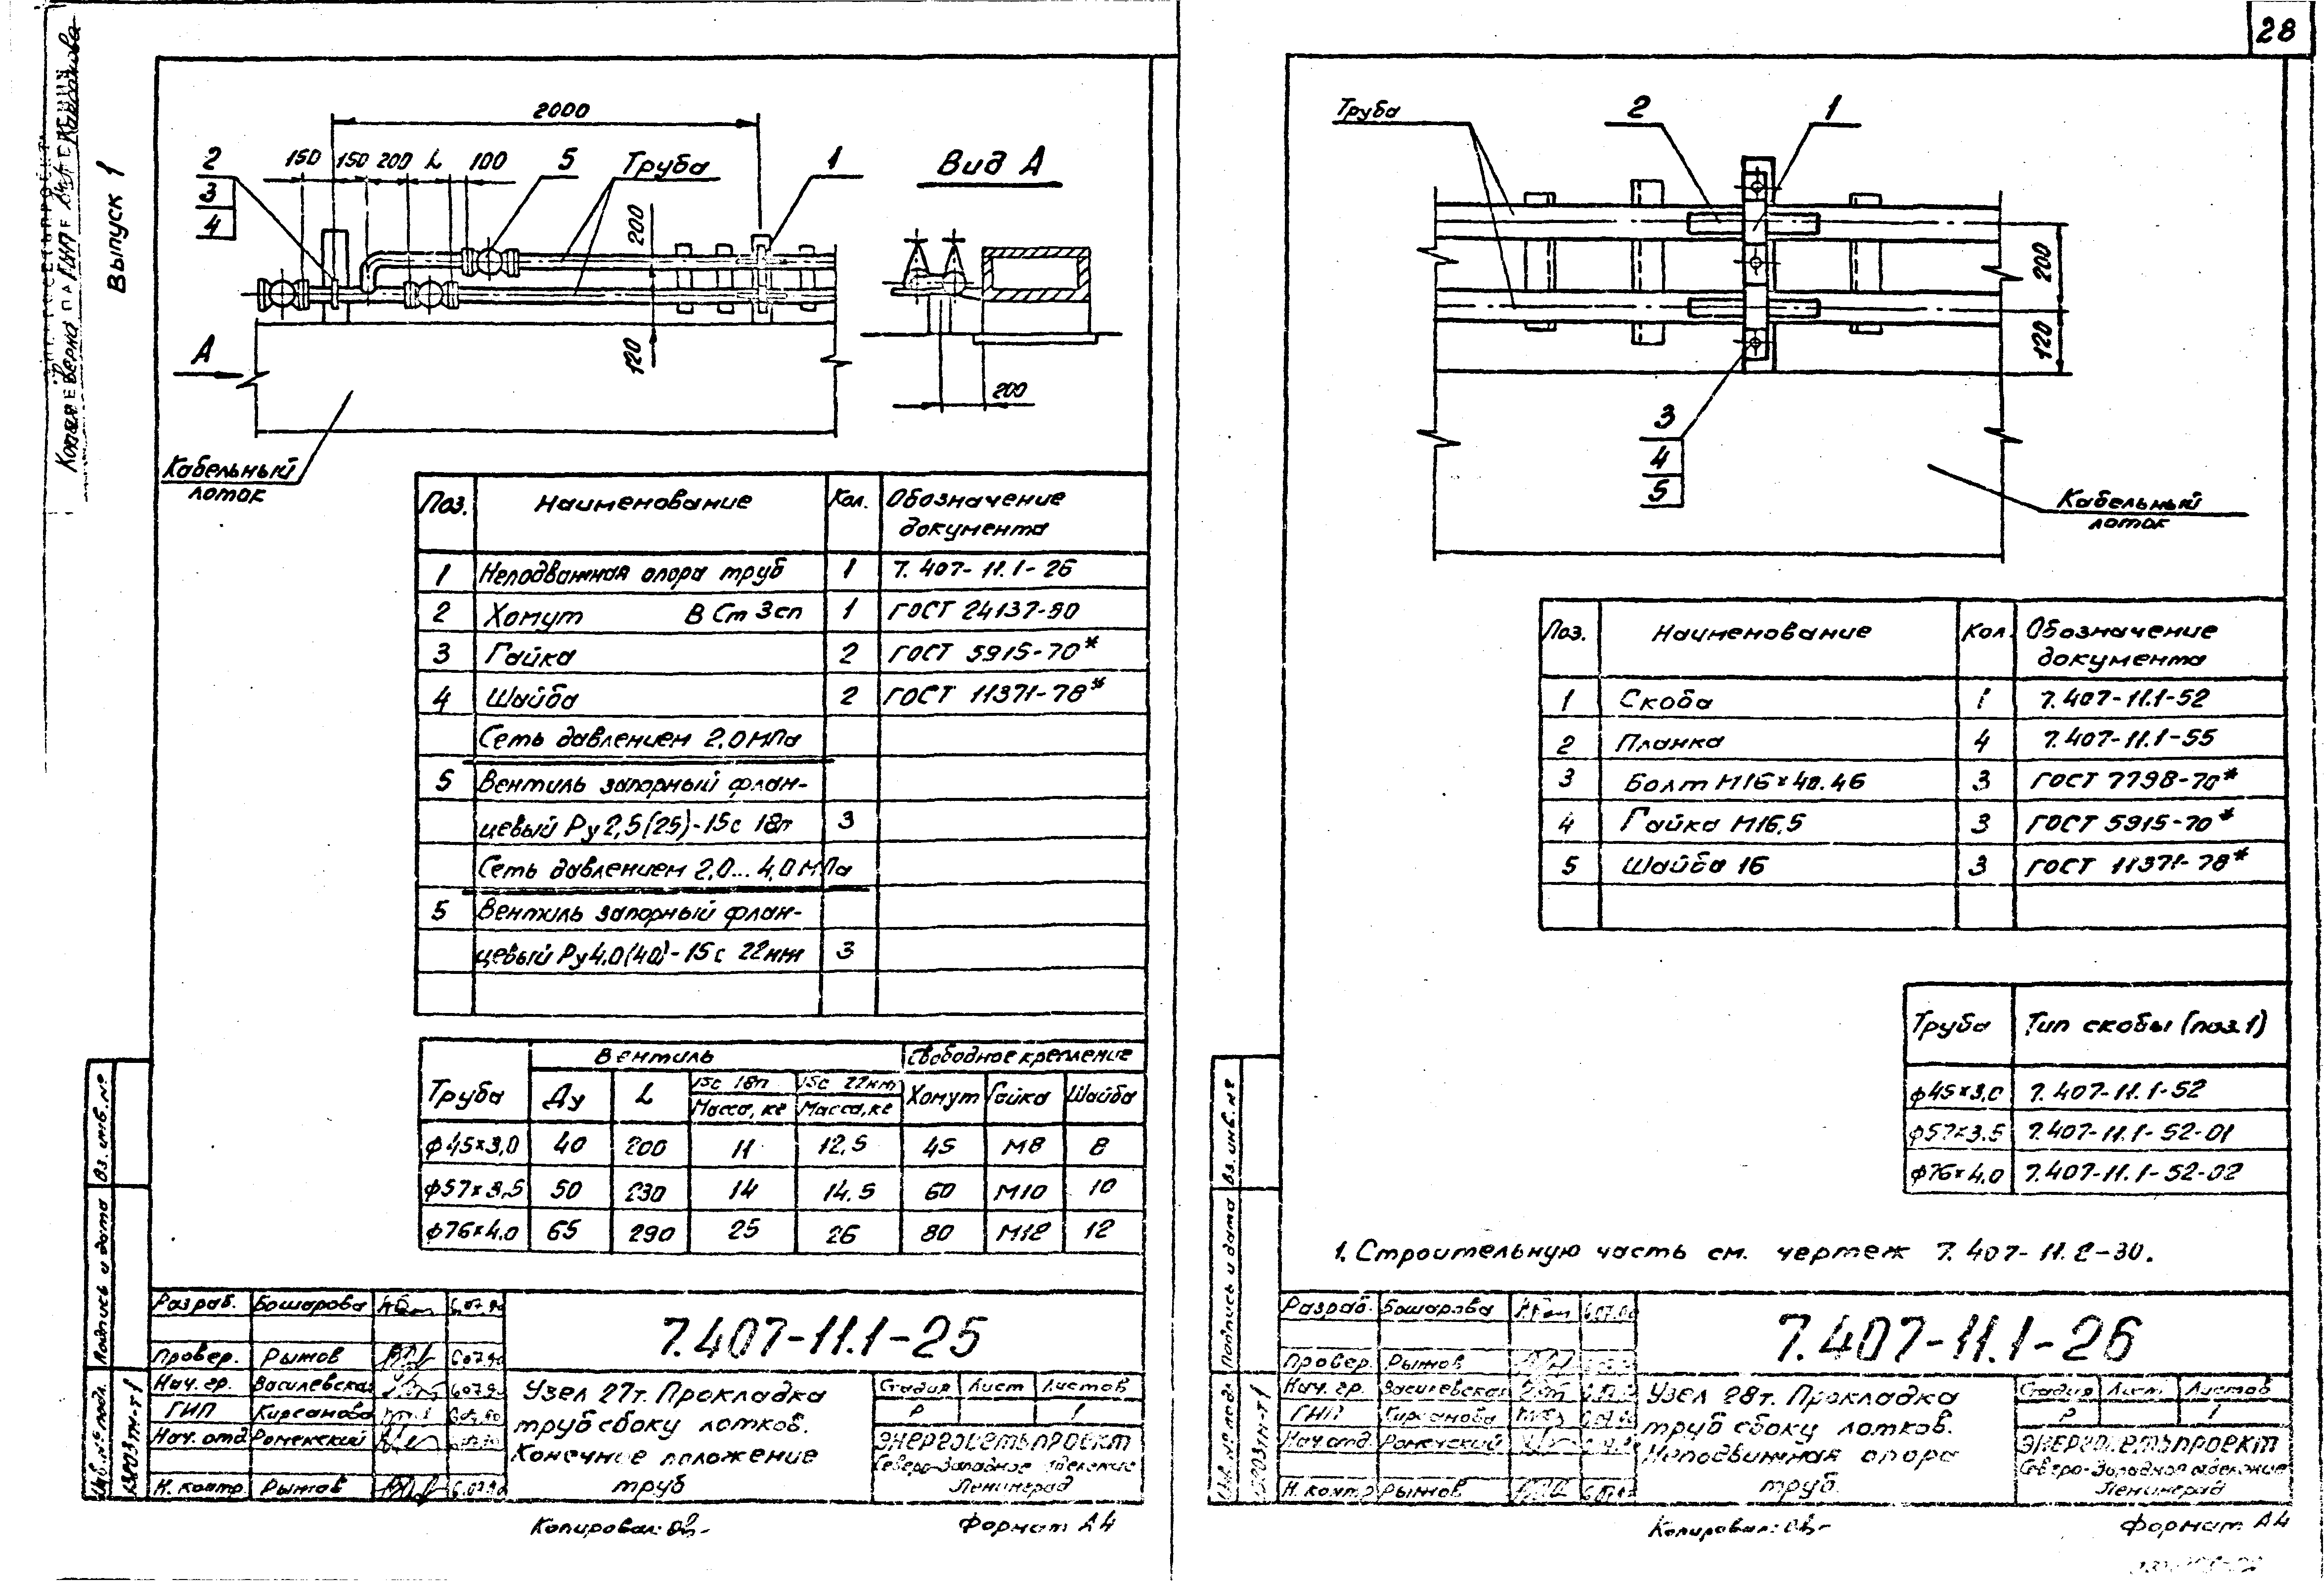 28
Выпуск 1
2000
150 150 200 L 100 5 Труба 1
2
3
4
200
120
А
Кабельный
лоток
Вид А
200
Поз. Наименование Кол. Обозначение документа
1 Неподвижная опора труб 1 7.407-11.1-26
2 Хомут ВСт 3сп 1 ГОСТ 24137-80
3 Гайка 2 ГОСТ 5915-70*
4 Шайба 2 ГОСТ 11371-78*
Сеть давлением 2,0МПа
5 Вентиль запорный флан-
цевый Ру2,5(25)-15с 18п 3
Сеть давлением 2,0...4,0МПа
5 Вентиль запорный флан-
цевый Ру4,0(40)-15с 22нж 3
Труба Вентиль Свободное крепление
Ду L 15с 18п 15с 22нж Хомут Гайка Шайба
Масса, кг Масса, кг
ф45×3,0 40 200 11 12,5 45 М8 8
ф57×3,5 50 230 14 14,5 60 М10 10
ф76×4,0 65 290 25 26 80 М12 12
Взам. инв. №
Подпись и дата
Инв. № подл.
Разраб. Бошарова
Провер. Рыжов
Нач. гр. Василевская
ГИП Кирсанова
Нач. отд Роменский
Н. контр Рыжов
7.407-11.1-25
Узел 27т. Прокладка
труб сбоку лотков.
Конечное положение
труб
Стадия Лист Листов
Р 1
ЭНЕРГОСЕТЬПРОЕКТ
Северо-Западное отделение
Ленинград
Копировал:
Формат А4
Труба 2 1
200
120
3
4
5
Кабельный
лоток
Поз. Наименование Кол. Обозначение документа
1 Скоба 1 7.407-11.1-52
2 Планка 4 7.407-11.1-55
3 Болт М16×40.46 3 ГОСТ 7798-70*
4 Гайка М16.5 3 ГОСТ 5915-70*
5 Шайба 16 3 ГОСТ 11371-78*
Труба Тип скобы (поз.1)
ф45×3,0 7.407-11.1-52
ф57×3.5 7.407-11.1-52-01
ф76×4,0 7.407-11.1-52-02
1. Строительную часть см. чертеж 7.407-11.2-30.
Вз. инв. №
Подпись и дата
Инв. № подл
Разраб. Бошарова
Провер. Рыжов
Нач. гр. Василевская
ГИП Кирсанова
Нач отд. Роменский
Н. контр Рыжов
7.407-11.1-26
Узел 28т. Прокладка
труб сбоку лотков.
Неподвижная опора
труб.
Стадия Лист Листов
Р 1
ЭНЕРГОСЕТЬПРОЕКТ
Северо-Западное отделение
Ленинград
Копировал:
Формат А4